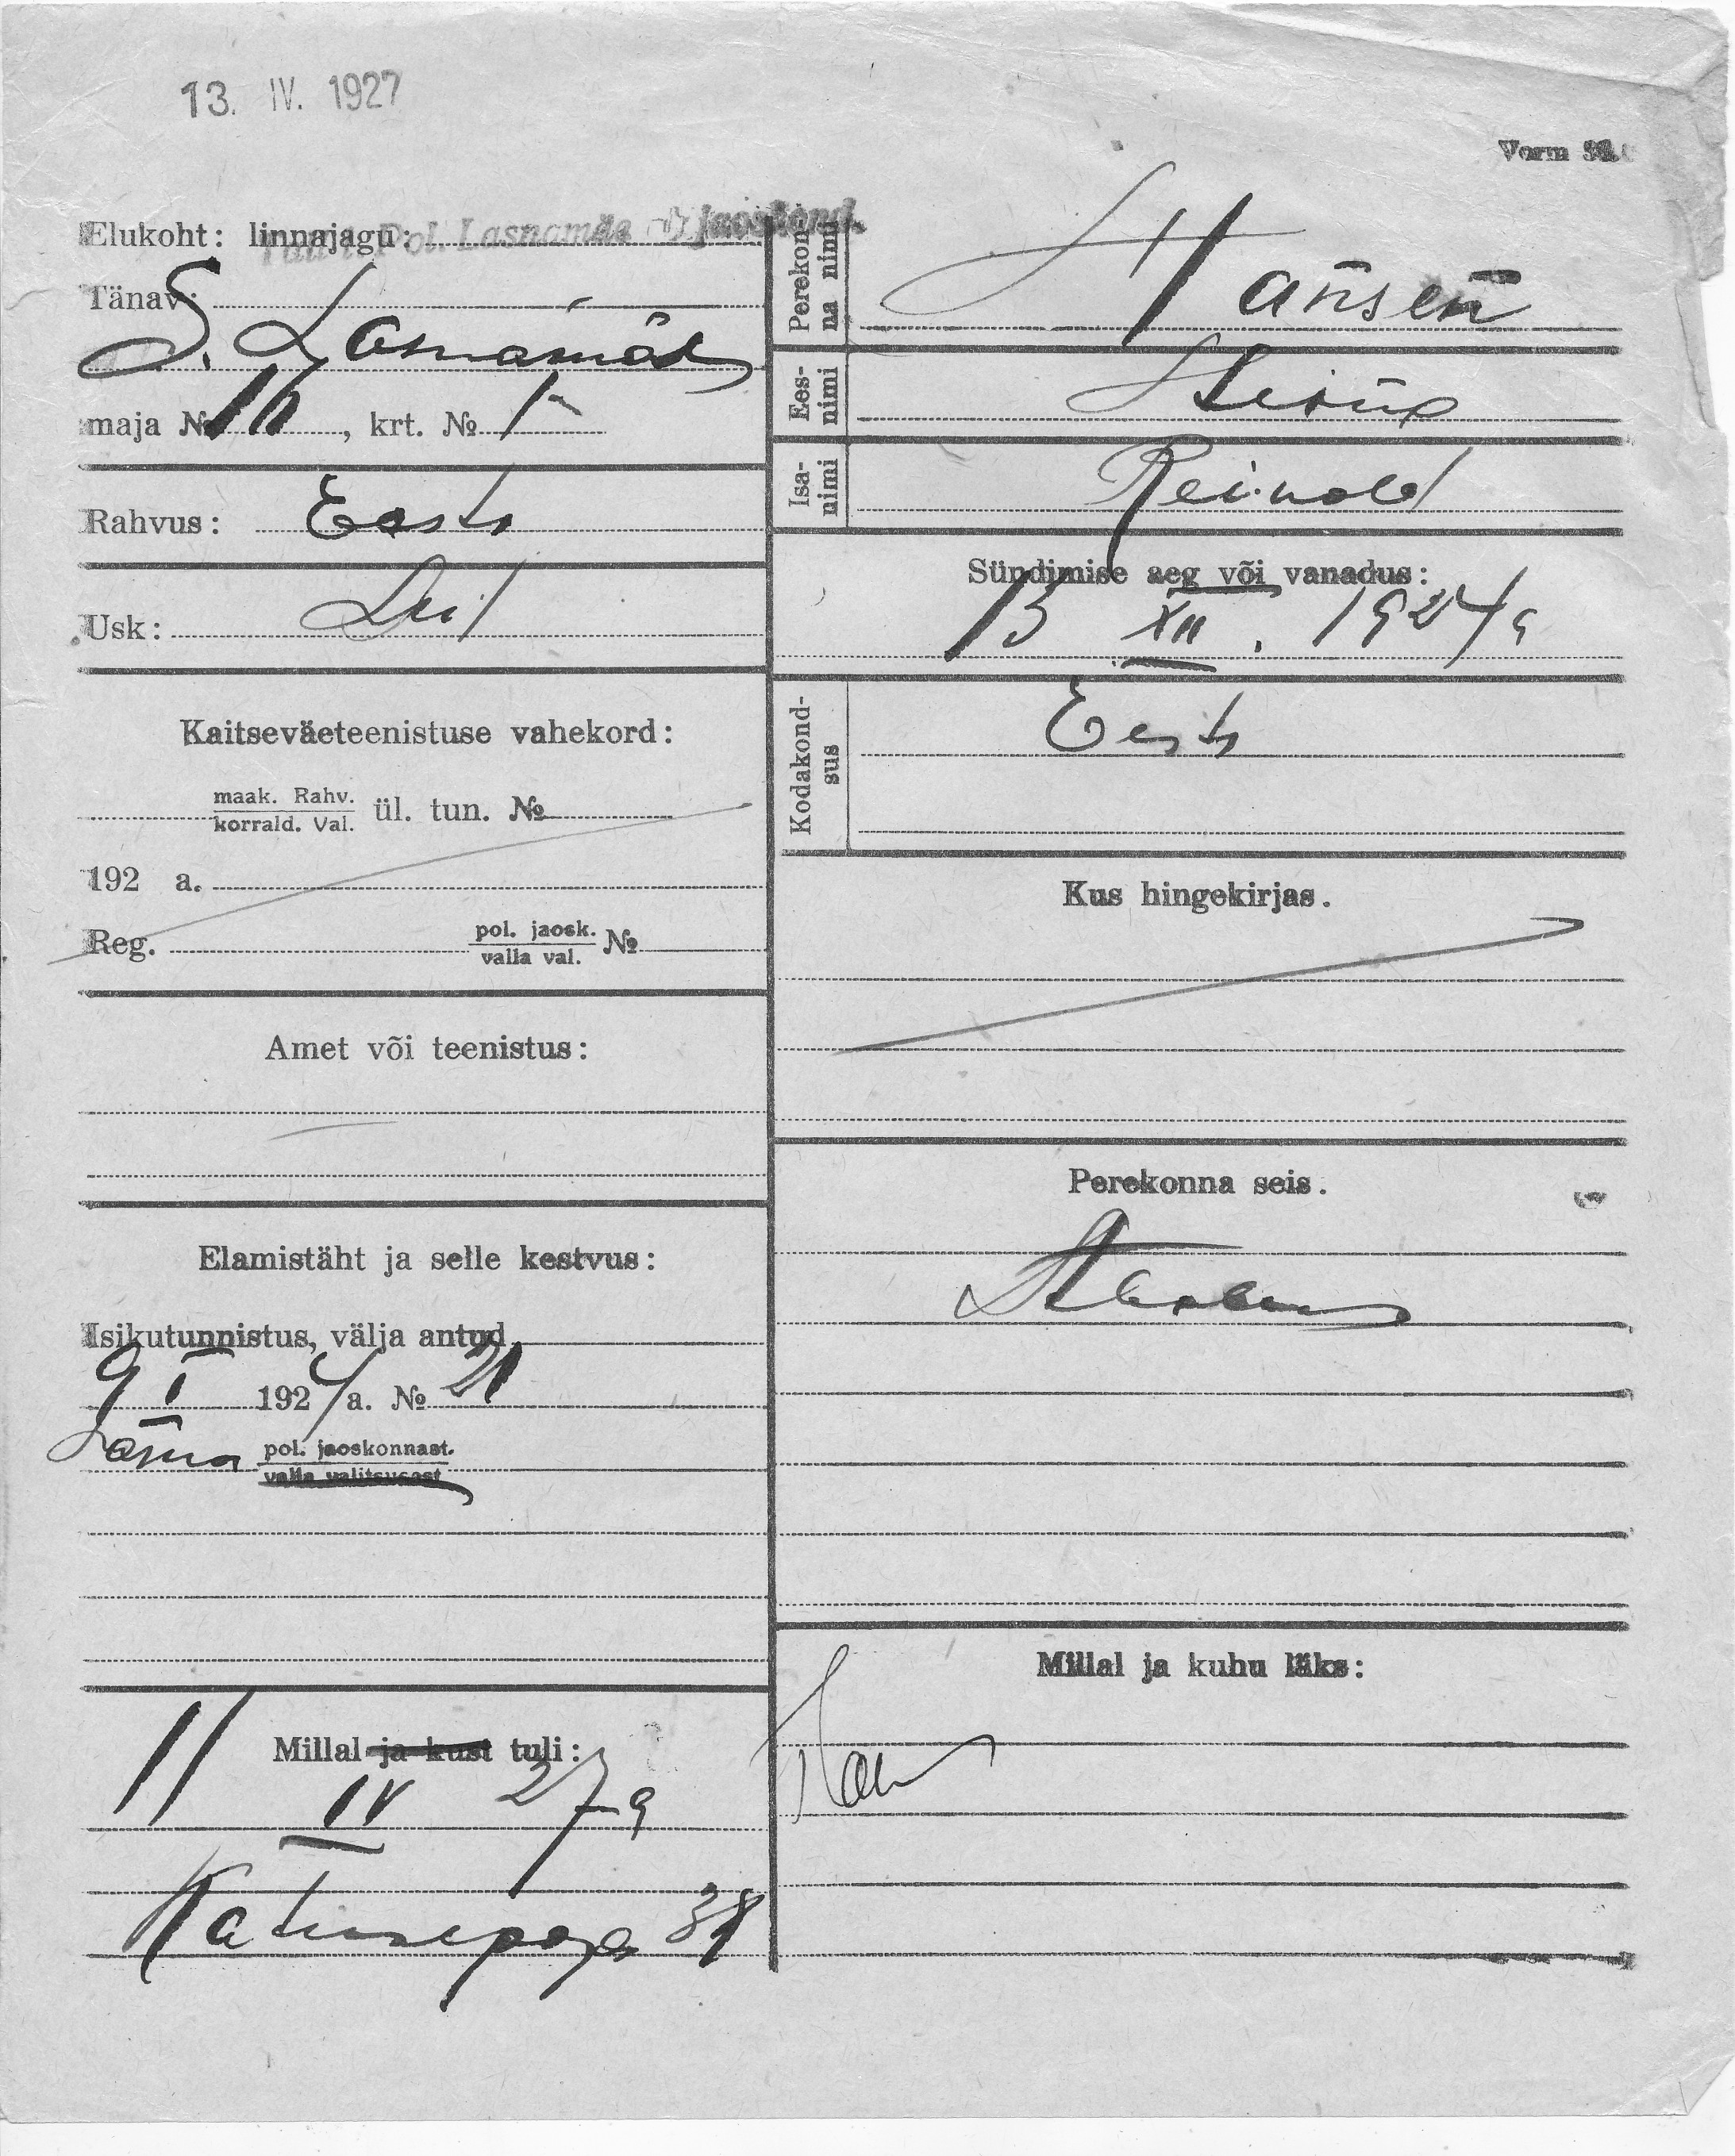 13. IV. 1927
Vorm
Elukoht: linnajagu: Pol. Lasnamäe jaoskond.
Tänav:
S. Lasnamäe
maja № 16, krt. № 1
Rahvus: Eesti
Usk:
Kaitseväeteenistuse vahekord:
maak. Rahv.
korrald. Val. ül. tun. №
192 a.
Reg. pol. jaosk.
valla val. №
Amet või teenistus:
Elamistäht ja selle kestvus:
Isikutunnistus, välja antud
9 I 1927 a. № 21
Lasna pol. jaoskonnast.
valla valitsusest
Millal ja kust tuli:
11 IV 27 a
Katusepapi 38
Perekon-
na nimi
Hansen
Ees-
nimi
Isa-
nimi
Reinold
Sündimise aeg või vanadus:
13 XII. 1924 a
Kodakond-
sus
Eesti
Kus hingekirjas.
Perekonna seis.
Millal ja kuhu läks: